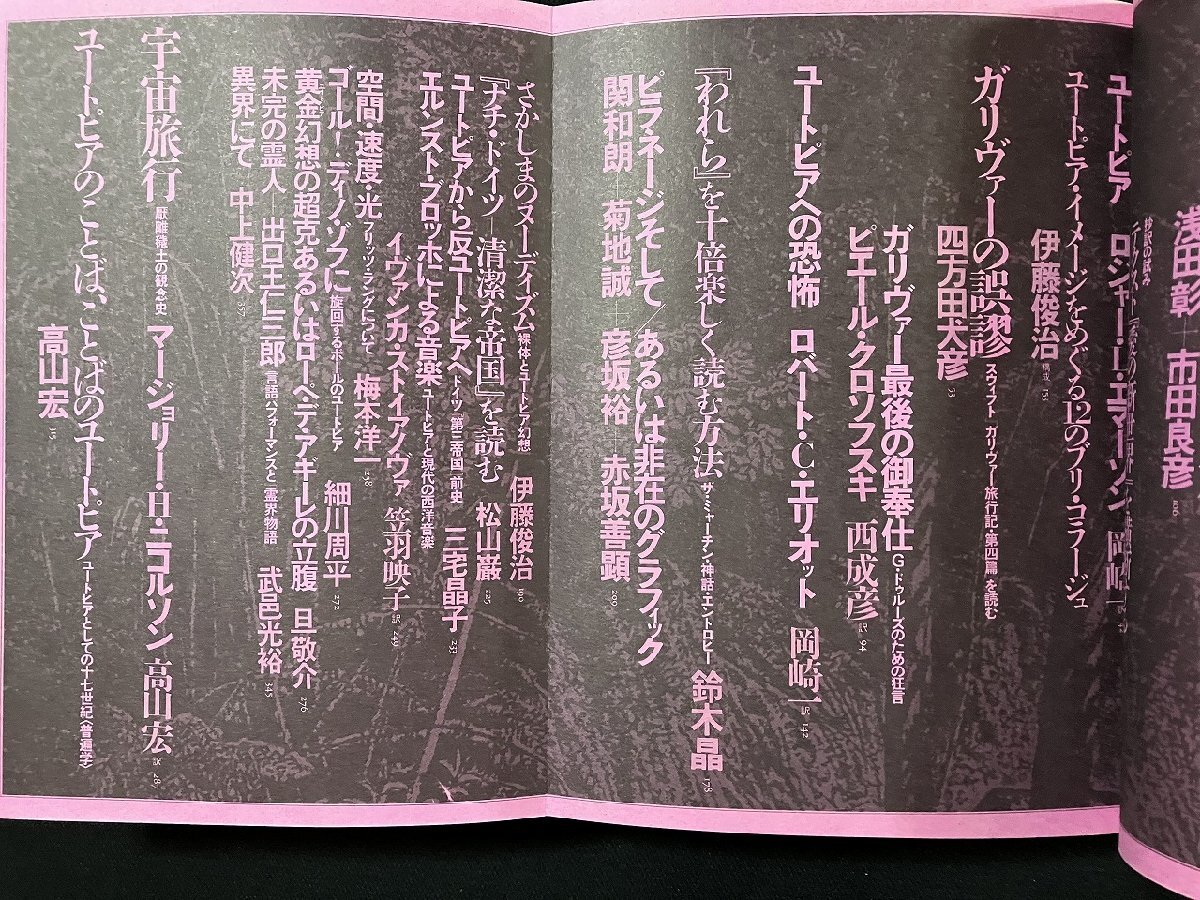 浅田彰―市田良彦
ユートピア ロジャー・L・エマーソン 岡崎一
ユートピア・イメージをめぐる12のブリ・コラージュ
伊藤俊治 構成 151
ガリヴァーの誤謬 スウィフト『ガリヴァー旅行記・第四篇』を読む
四方田犬彦
ガリヴァー最後の御奉仕 G・ドゥルーズのための狂言
ピエール・クロソフスキ 西成彦 訳 94
ユートピアへの恐怖 ロバート・C・エリオット 岡崎一 訳 142
『われら』を十倍楽しく読む方法 ザ・ミャーチン・神話・エントロピー 鈴木晶 173
ピラネージそして/あるいは非在のグラフィック
関和朗―菊地誠 彦坂裕―赤坂善顕 200
さかしまのヌーディズム 裸体とユートピア幻想 伊藤俊治 190
『ナチ・ドイツ―清潔な帝国』を読む 松山巖 225
ユートピアから反ユートピアへ ドイツ「第三帝国」前史 三宅晶子 233
エルンスト・ブロッホによる音楽 ユートピアと現代の西洋音楽
イヴァンカ・ストイアノヴァ 笠羽映子 訳 249
空間・速度・光 フリッツ・ラングについて 梅本洋一 258
ゴール!・ディノ・ゾフに 旋回するボールのユートピア 細川周平 272
黄金幻想の超克あるいはローペ・デ・アギーレの立腹 旦敬介 276
未完の霊人―出口王仁三郎 言語パフォーマンスと『霊界物語』 武邑光裕 345
異界にて 中上健次 337
宇宙旅行 厭離穢土の観念史 マージョリー・H・ニコルソン 高山宏 訳 287
ユートピアのことば、ことばのユートピア ユートピアとしての十七世紀〈普遍学〉
高山宏